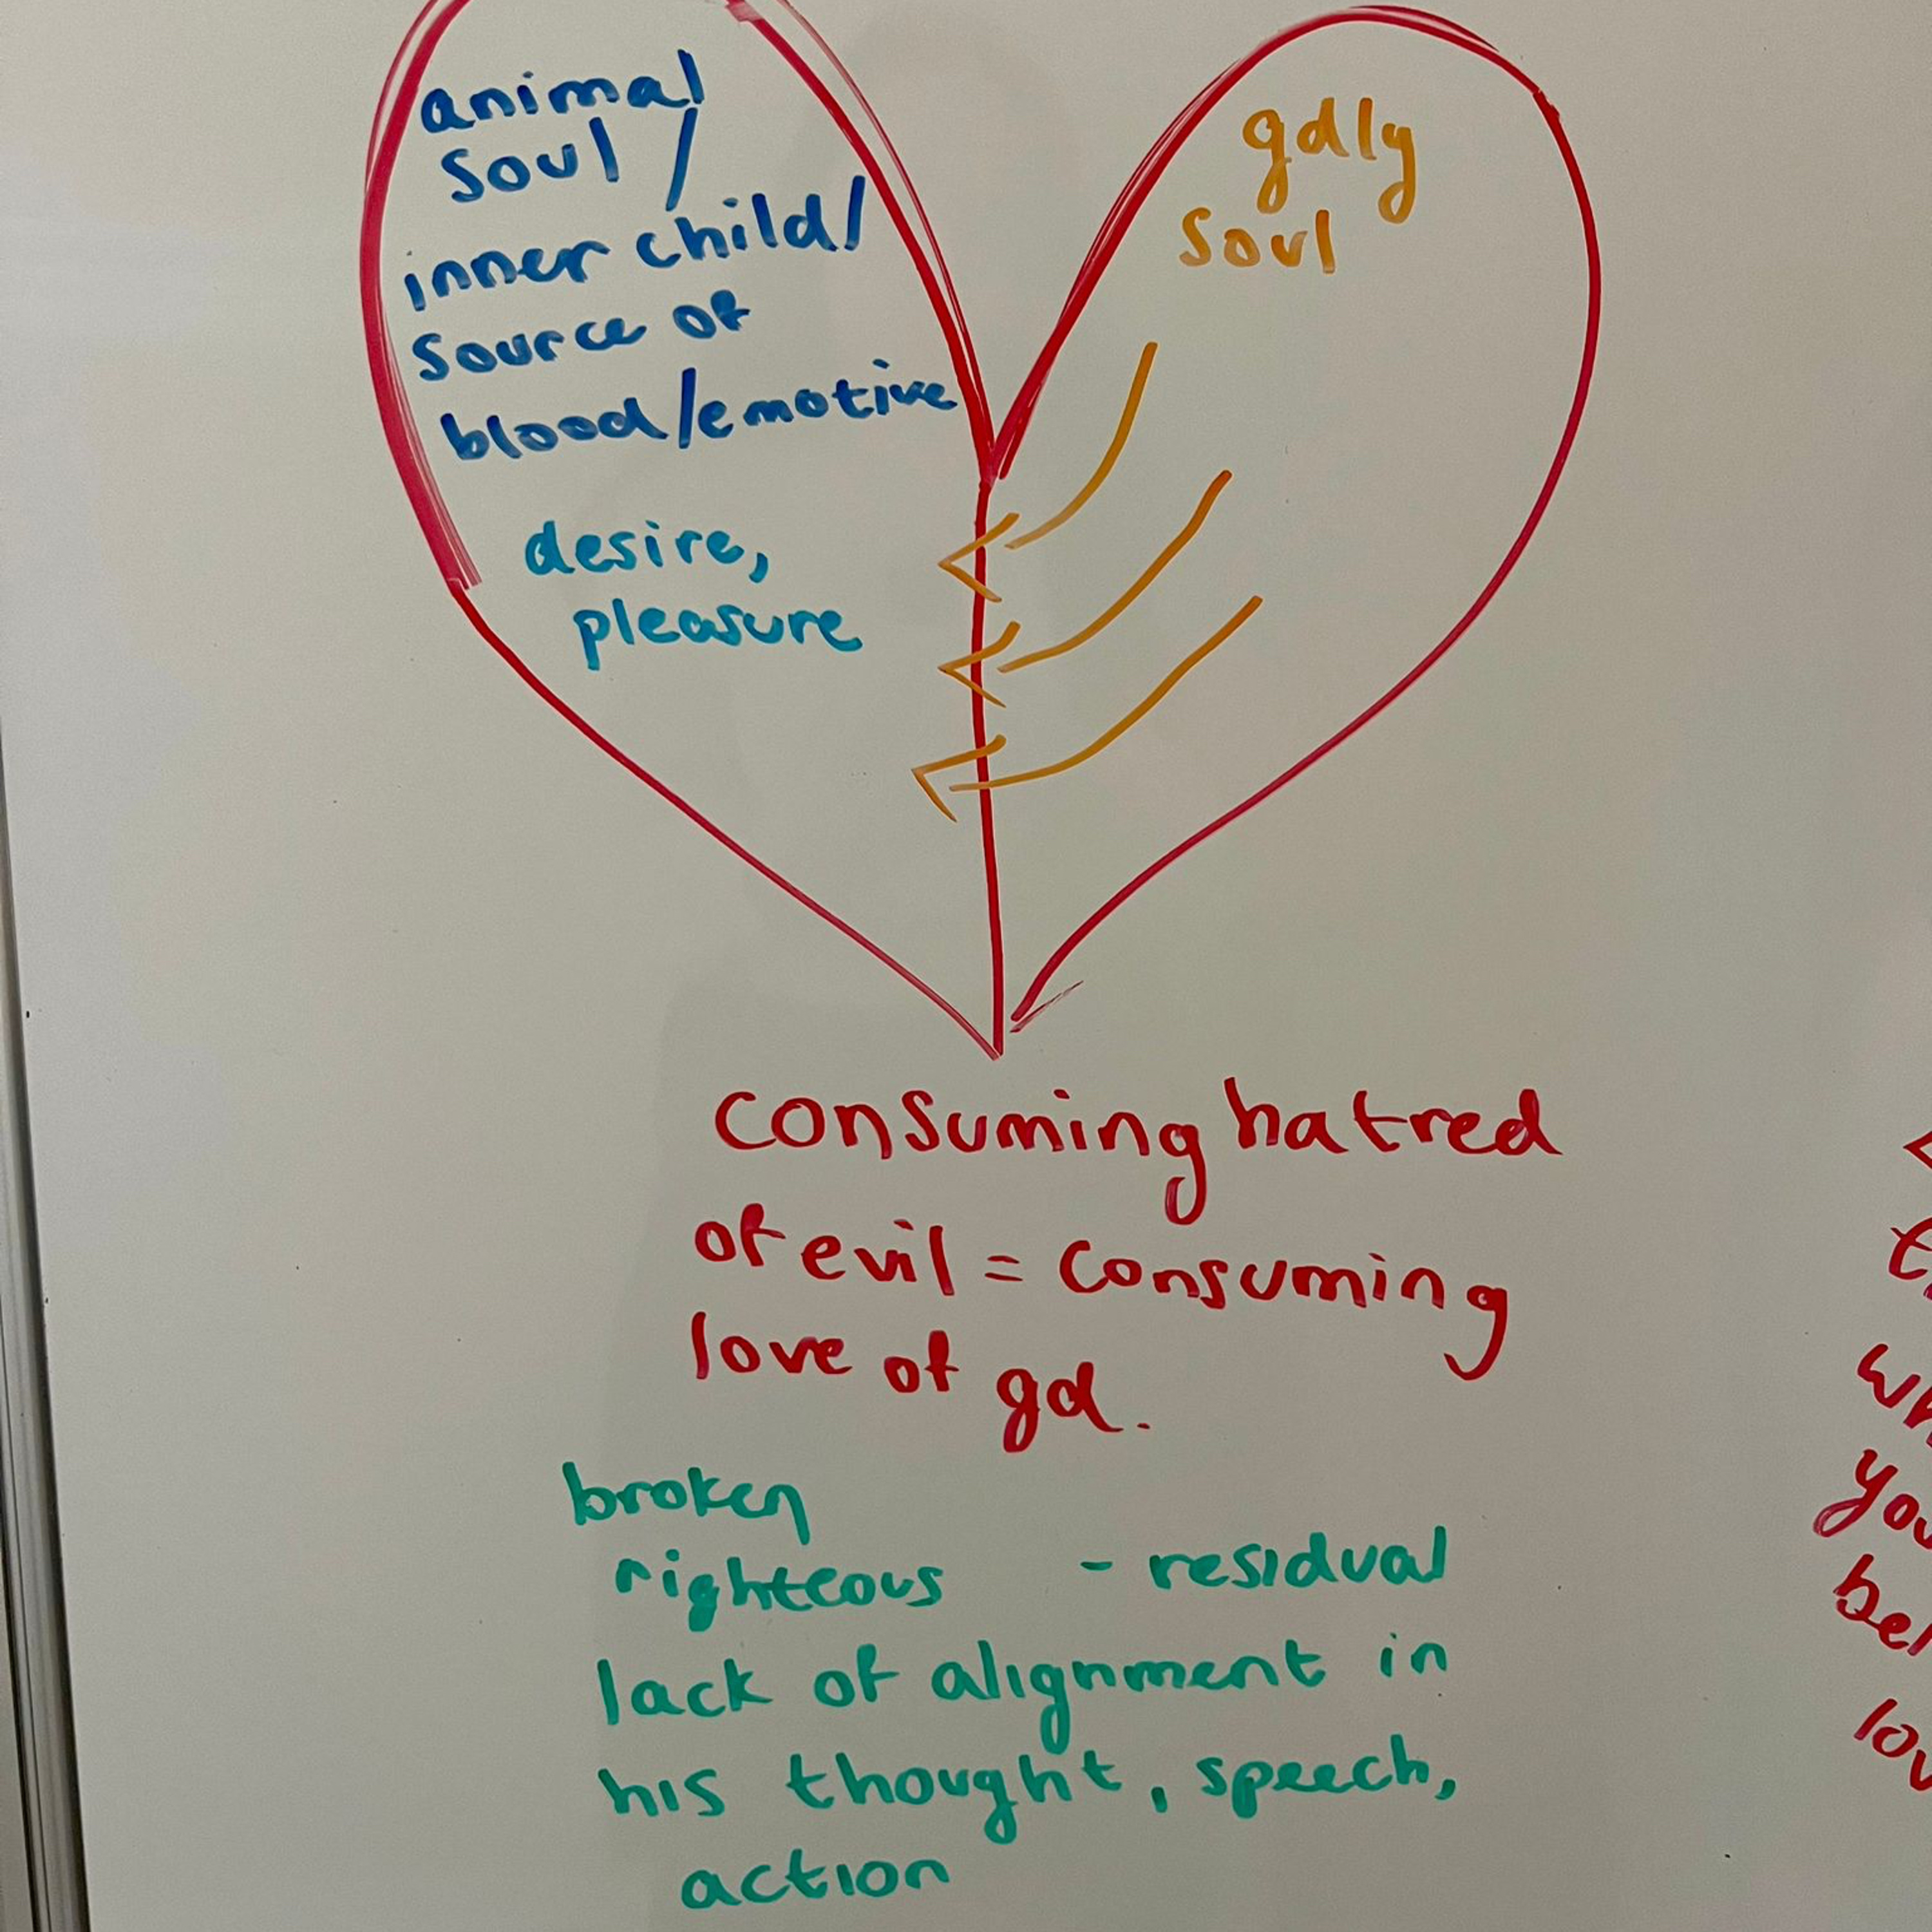 animal
soul /
inner child/
source of
blood/emotive
desire,
pleasure
gdly
soul
consuming hatred
of evil = consuming
love of gd.
broken
righteous - residual
lack of alignment in
his thought, speech,
action